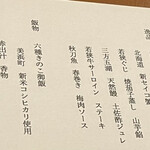 逸品
北海道 新セイコ蟹
若狭ぐじ 焼茄子蒸し 山芋餡
三方五湖 天然鰻 土佐酢ジュレ
若狭牛サーロイン ステーキ
秋刀魚 春巻き 梅肉ソース
飯物
六種きのこ御飯
美浜町 新米コシヒカリ使用
赤出汁 香物